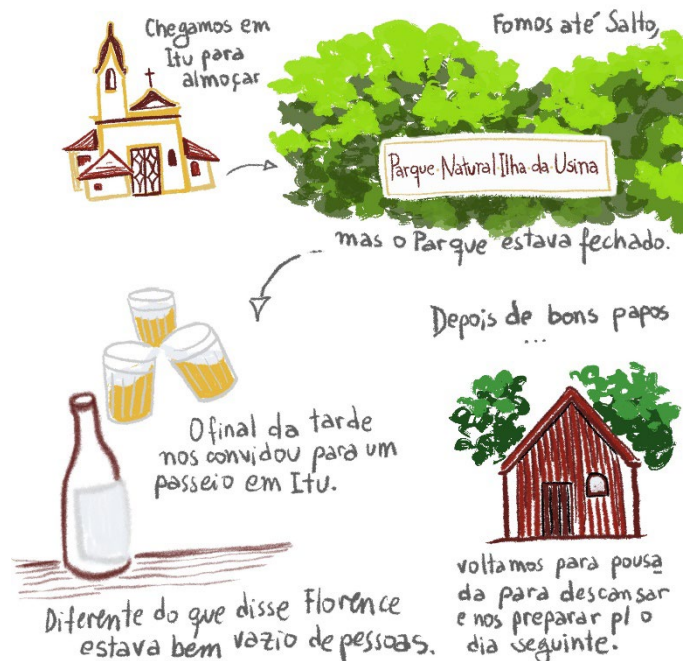 Chegamos em
Itu para
almoçar
Fomos até Salto,
Parque Natural Ilha da Usina
mas o Parque estava fechado.
O final da tarde
nos convidou para um
passeio em Itu.
Diferente do que disse Florence
estava bem vazio de pessoas.
Depois de bons papos
...
voltamos para pousa
da para descansar
e nos preparar p/ o
dia seguinte.